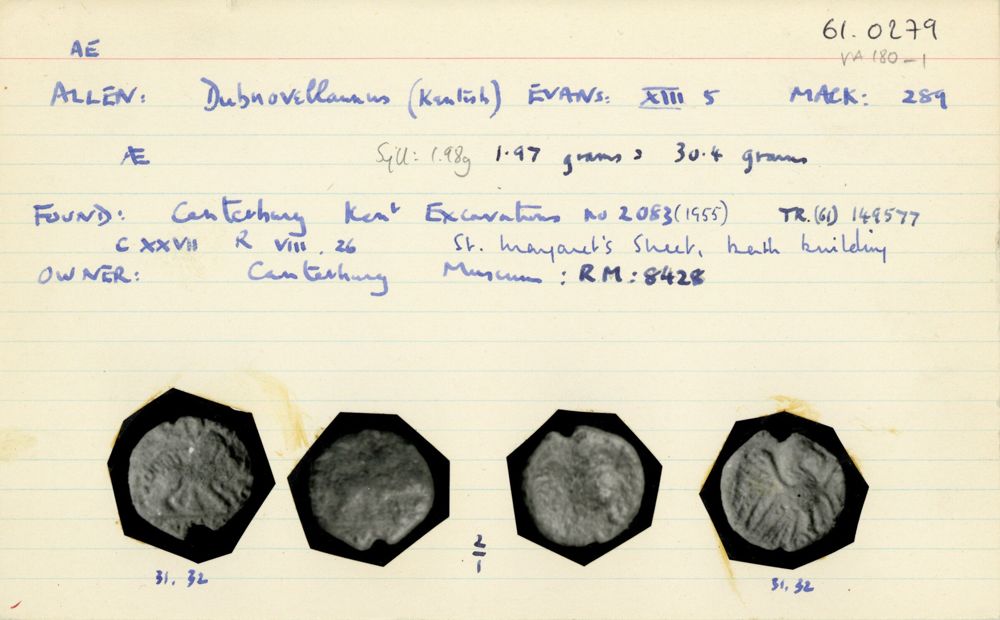 61.0279
AE VA 180-1
ALLEN: Dubnovellaunus (Kentish) EVANS: XIII 5 MACK: 289
Æ Syll: 1.98g 1.97 grams = 30.4 grains
FOUND: Canterbury Kent Excavations no 2083 (1955) TR.(61) 149577
C XXVII R VIII . 26 St. Margaret's Street, bath building
OWNER: Canterbury Museum : RM: 8428
2/1
31. 32 31. 32